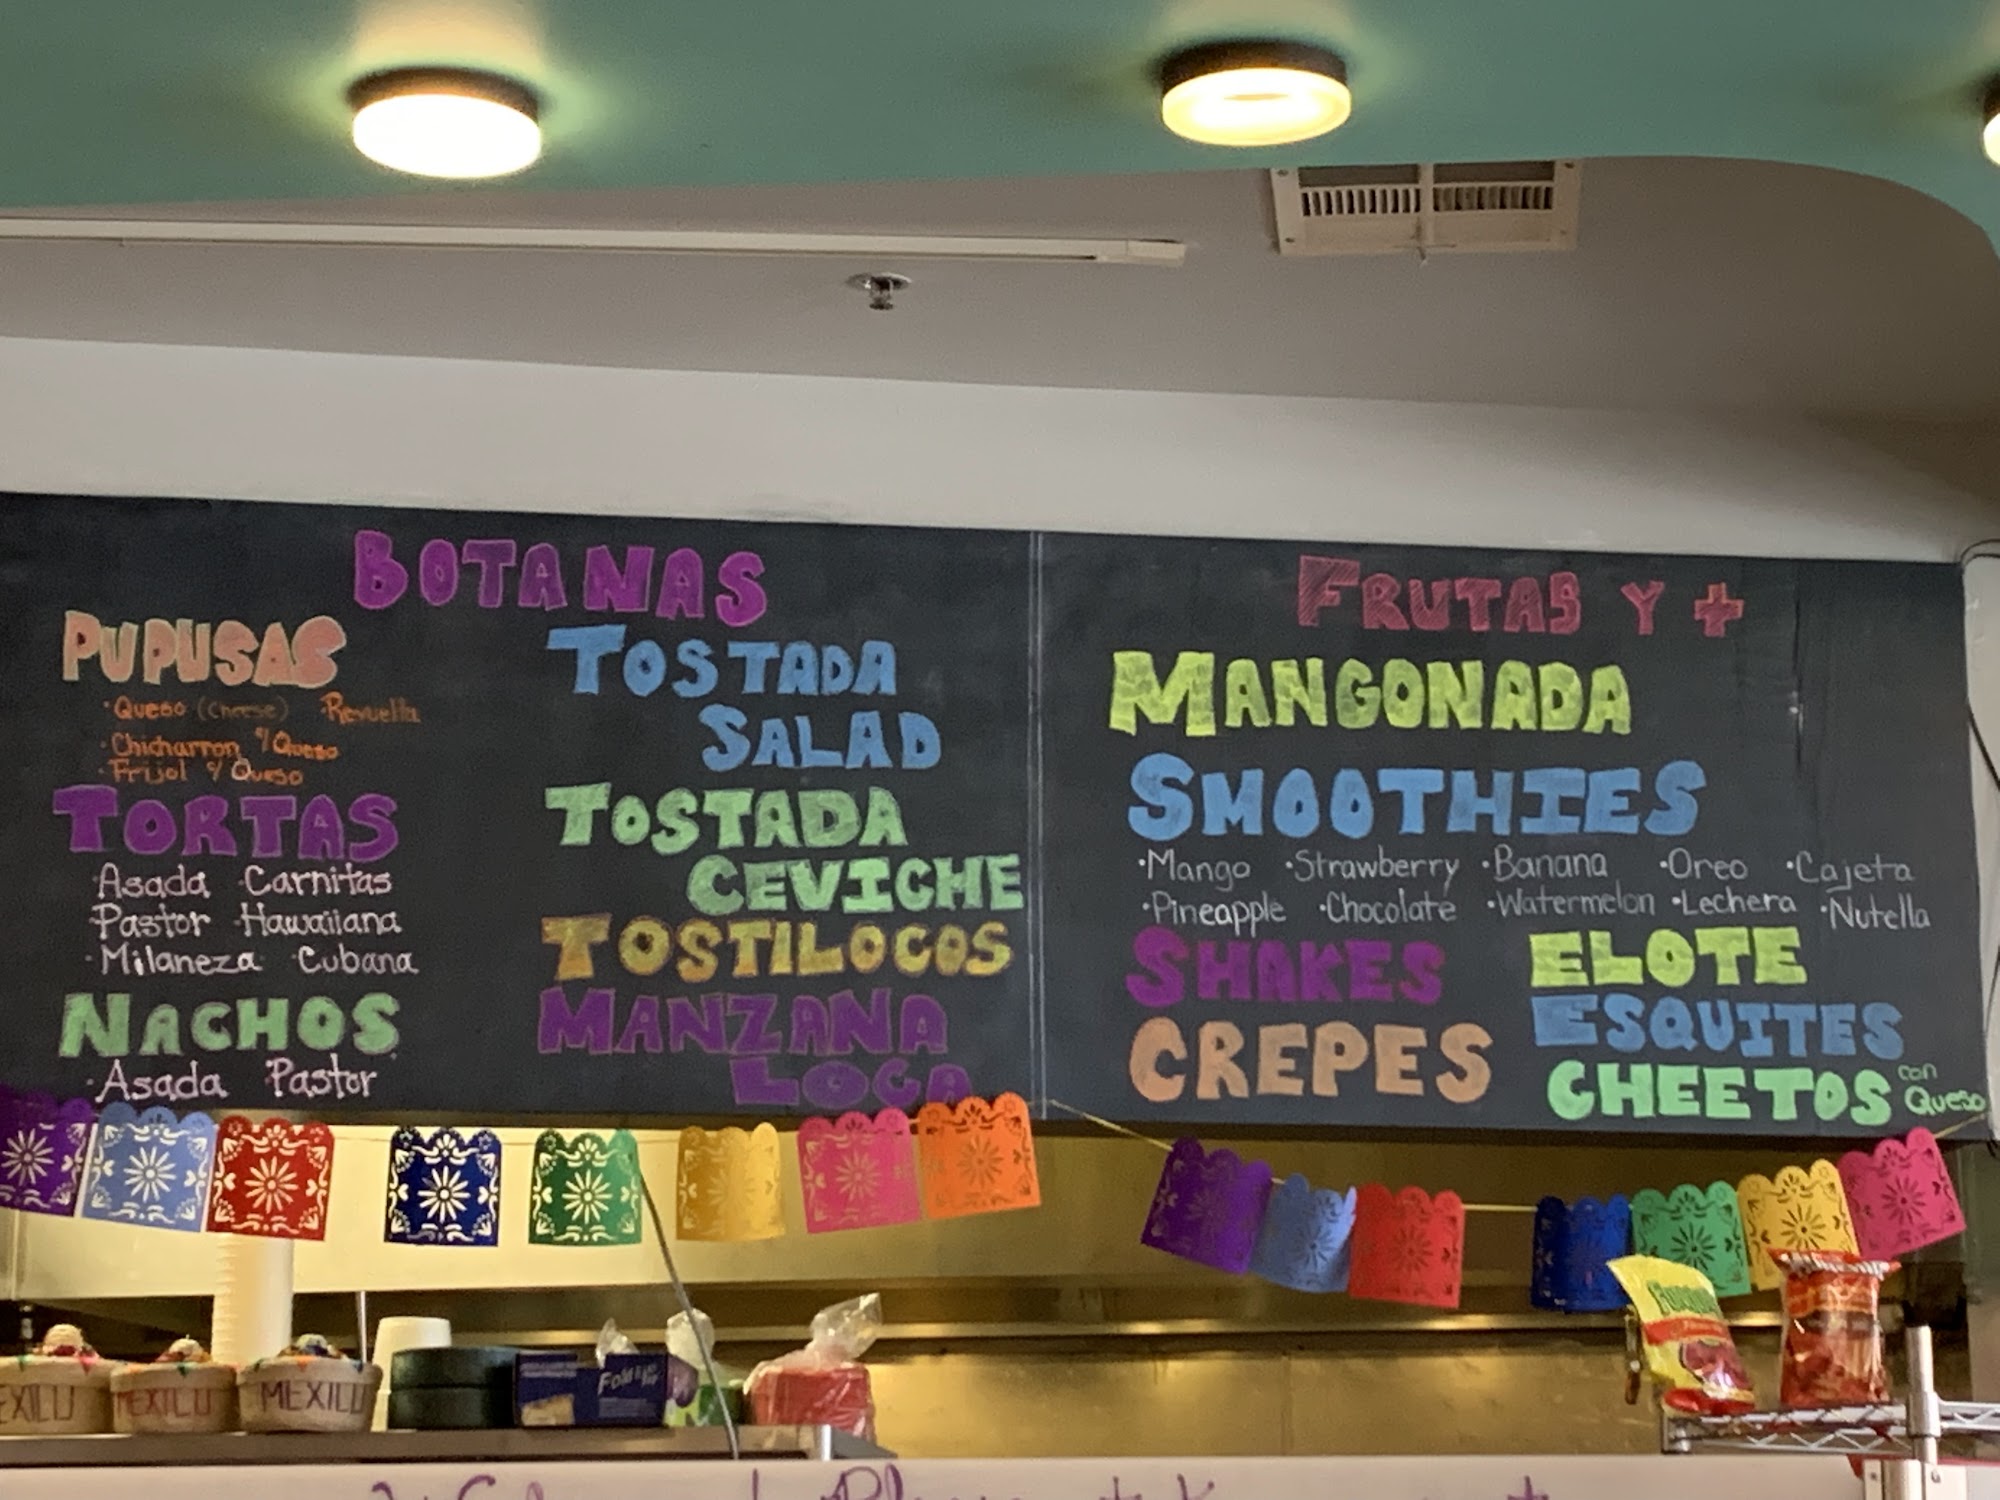 BOTANAS
PUPUSAS
· Queso (cheese) · Revuelta
· Chicharron y Queso
· Frijol y Queso
TORTAS
· Asada · Carnitas
· Pastor · Hawaiiana
· Milaneza · Cubana
NACHOS
· Asada · Pastor
TOSTADA
SALAD
TOSTADA
CEVICHE
TOSTILOCOS
MANZANA
LOCA
FRUTAS Y +
MANGONADA
SMOOTHIES
· Mango · Strawberry · Banana · Oreo · Cajeta
· Pineapple · Chocolate · Watermelon · Lechera · Nutella
SHAKES
CREPES
ELOTE
ESQUITES
CHEETOS con
Queso
EXICO
MEXICO
MEXICO